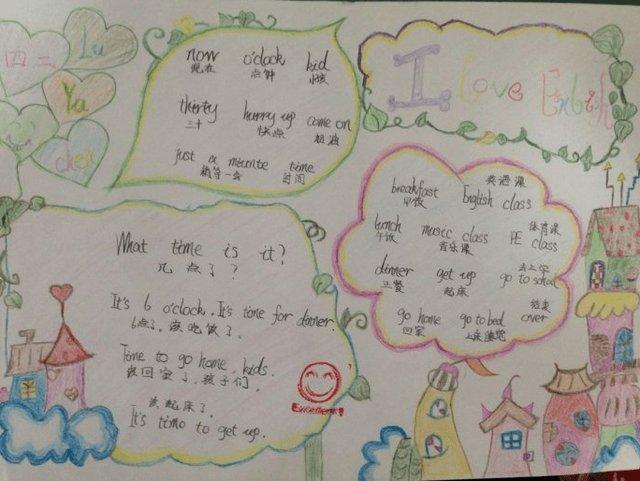 四二
Lu
Yu
chen
now o'clock kid
现在 点钟 小孩
thirty hurry up come on
三十 快点
just a miunte time
稍等一会 时间
I Love English
英语课
breakfast English class
早饭
lunch music class PE class
午饭 音乐课 体育课
dinner get up go to school
正餐 起床 去上学
go home go to bed over
回家 上床睡觉 结束
What time is it?
几点了?
It's 6 o'clock. It's time for dinner.
6点了。该吃饭了。
Time to go home, kids.
该回家了,孩子们。
该起床了。
It's time to get up.
Excellent!